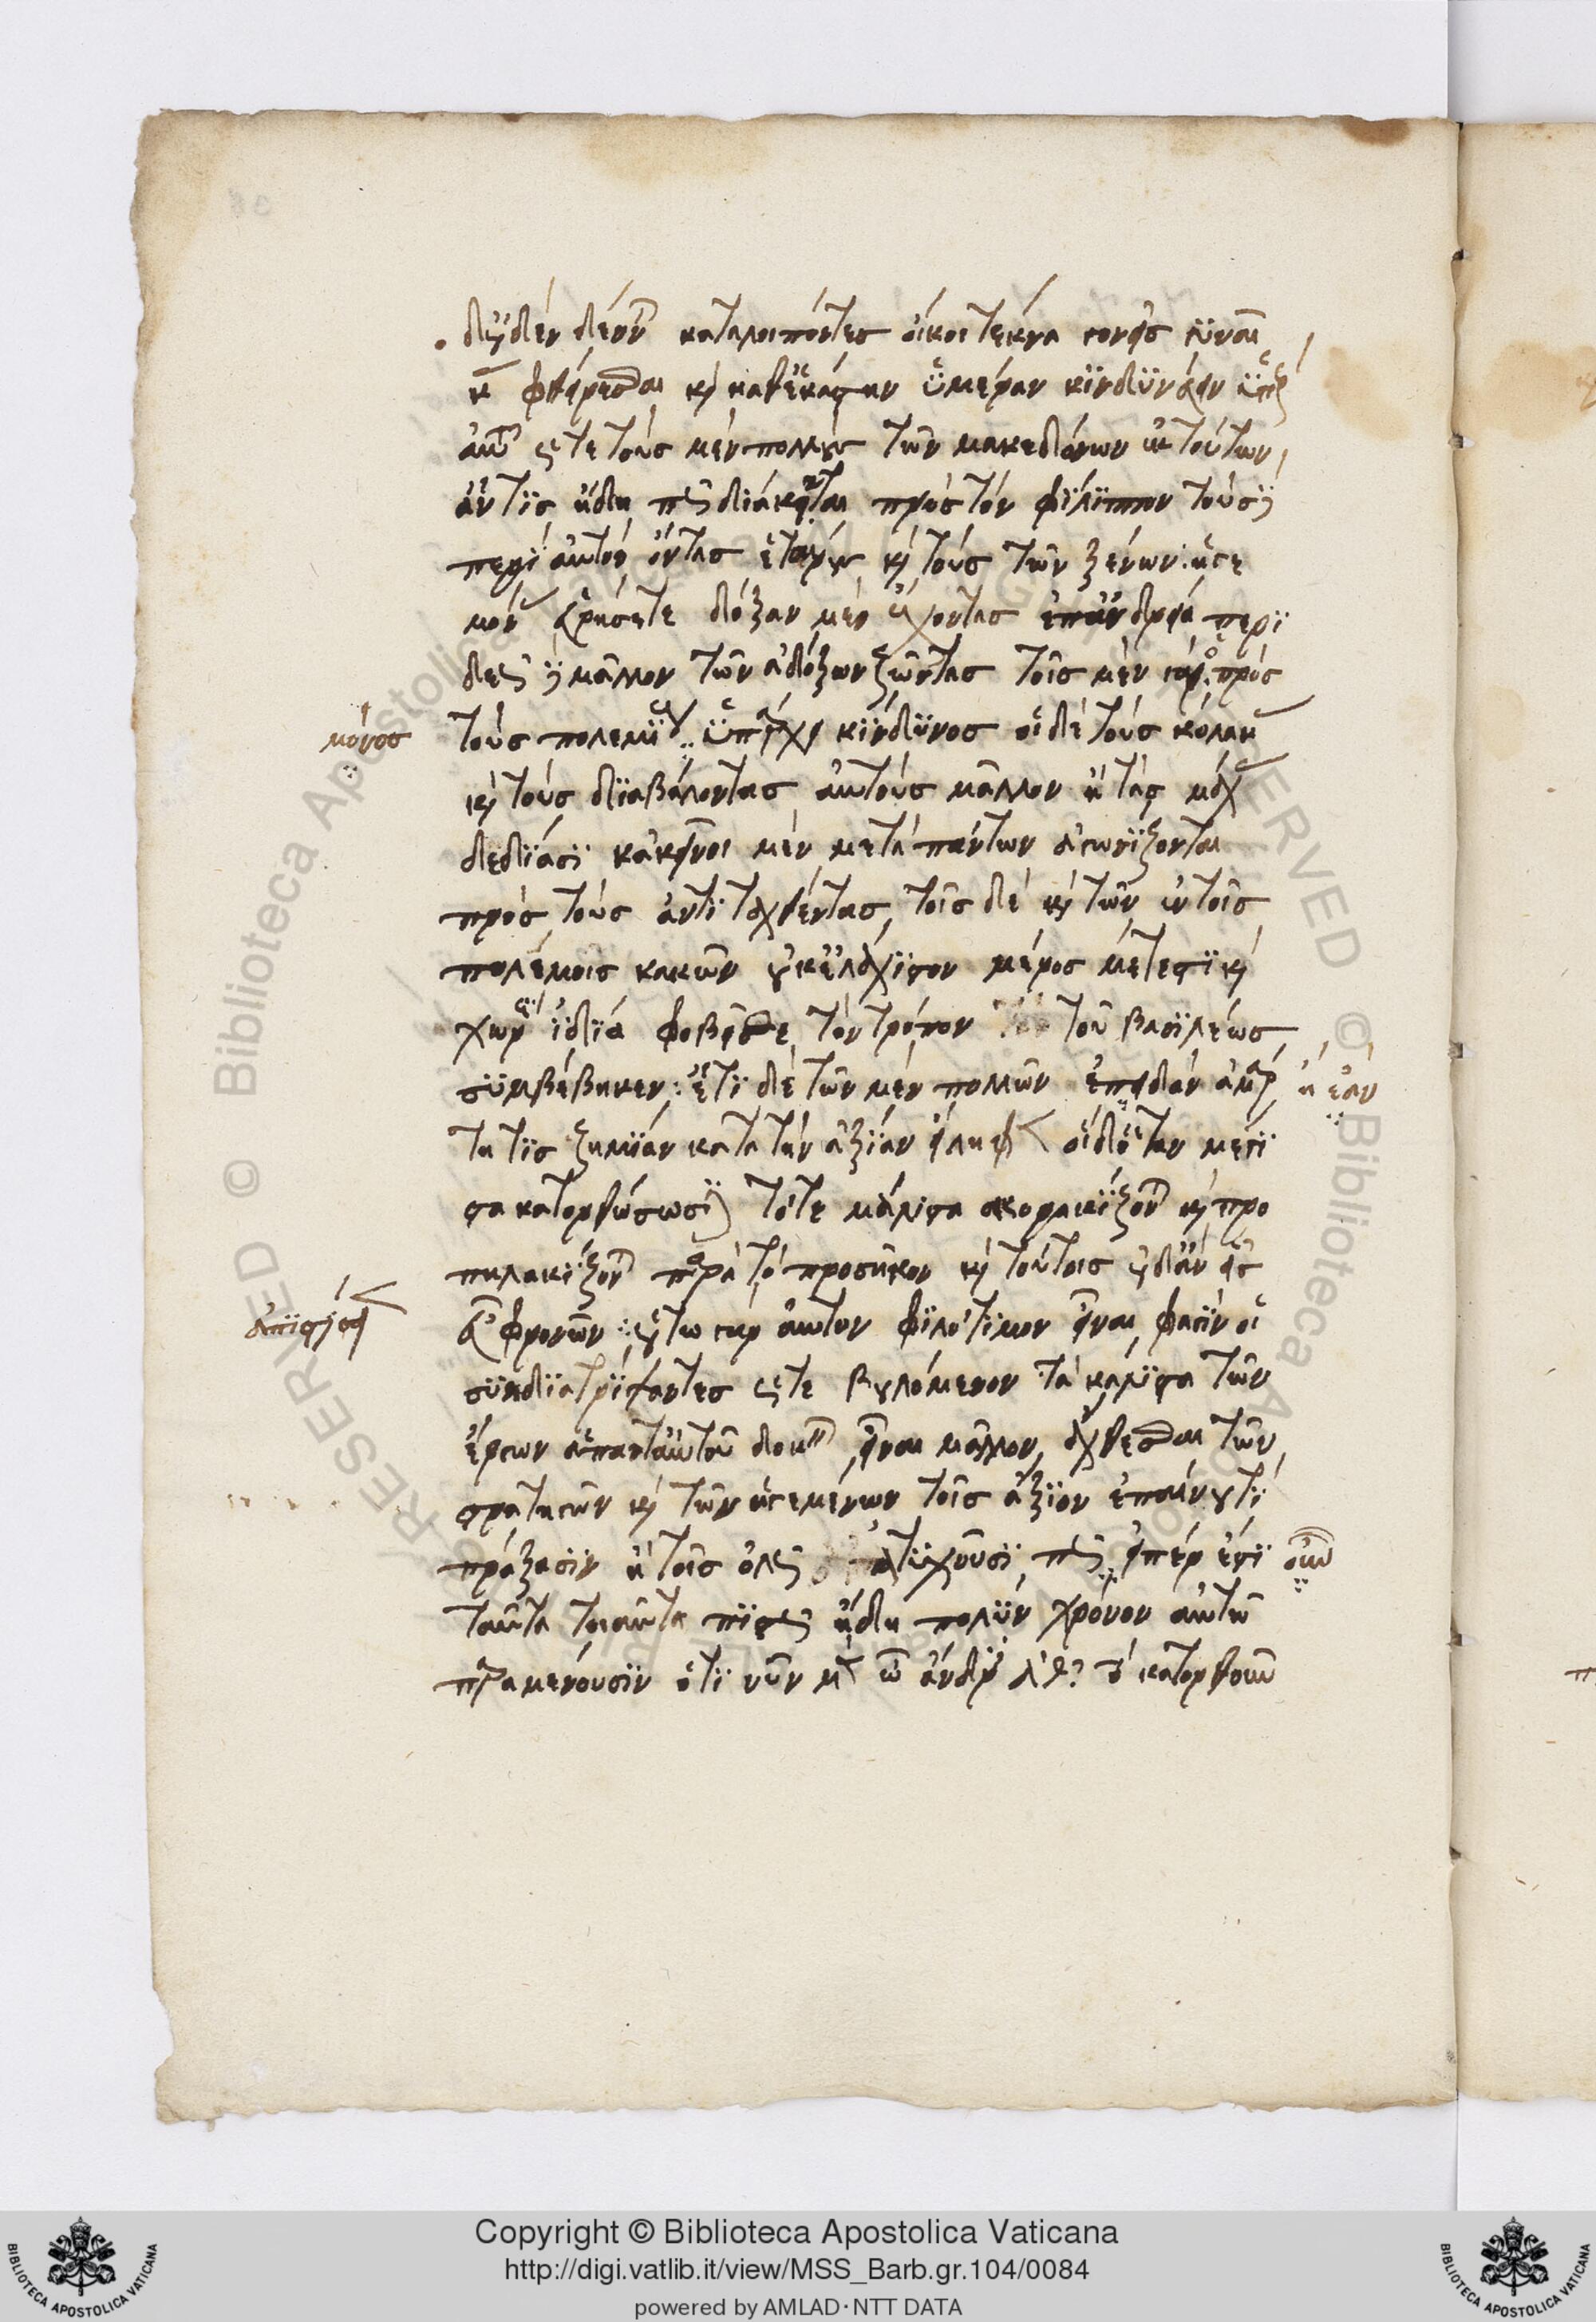 δι' οὐδὲν δέον καταλιπόντες οἴκοι τέκνα γονεῖς γϋναῖ
κας φθείρεσθαι καὶ καθ' ἑκάστην ἡμέραν κϊνδϋνεύειν ὑπὲρ
αὐτοῦ ὥστε τοὺς μὲν πολλοὺς τῶν μακεδόνων ἐκ τούτων
ἄν τϊς ἤδη πῶς διάκειται πρὸς τὸν φϊλϊππον τοὺς δὲ
περὶ αὐτὸν ὄντας ἑταίρους καὶ τοὺς τῶν ξένων ἡγε
μόνας εὑρήσετε δόξαν μὲν ἔχοντας ἐπ' ἀνδρείᾳ περϊ
δεῶς δὲ μᾶλλον τῶν ἀδόξων ζῶντας τοῖς μὲν γὰρ πρὸς
μόνος
τοὺς πολεμϊους ὑπάρχει κϊνδϋνος οἱ δὲ τοὺς κόλακας
καὶ τοὺς δϊαβάλοντας αὐτοὺς μᾶλλον ἢ τὰς μάχας
δεδϊάσϊ κἀκεῖνοι μὲν μετὰ πάντων ἀγωνϊζονται
πρὸς τοὺς ἀντϊταχθέντας τοῖς δὲ καὶ τῶν ἐν τοῖς
πολέμοις κακῶν οὐκ ἐλάχϊστον μέρος μέτεστϊ καὶ
χωρὶς ἰδϊᾳ φοβεῖσθαι τὸν τρόπον τοῦ βασϊλέως
σϋμβέβηκεν· ἔτϊ δὲ τῶν μὲν πολλῶν ἐπειδὰν ἁμάρ
ἢ ἐὰν
τη τϊς ζημϊαν κατὰ τὴν ἀξϊαν εἴληφεν οἱ δ' ὅταν μέγϊ
στα κατορθώσωσϊ τότε μάλϊστα σκορακϊζονται καὶ προ
πηλακϊζονται παρὰ τὸ προσῆκον καὶ τούτοις οὐδ' ἂν εἷς
ἀπϊστήσειεν
εὖ φρονῶν· οὕτω γὰρ αὐτὸν φϊλότϊμον εἶναι φασὶν οἱ
σϋνδϊατρϊψαντες ὥστε βουλόμενον τὰ κάλϊστα τῶν
ἔργων ἅπαντ' αὐτοῦ δοκεῖν εἶναι μᾶλλον ἄχθεσθαι τῶν
στρατηγῶν καὶ τῶν ἡγεμόνων τοῖς ἄξϊον ἐπαίνου τϊ
πράξασϊν ἢ τοῖς ὅλως ἀτϋχοῦσϊ πῶς εἴπερ ἐστϊ
οὖν
ταῦτα τοιαῦτα πϊστῶς ἤδη πολϋν χρόνον αὐτῷ
παραμένουσϊν ὅτϊ νῦν μὲν ὦ ἄνδρες ἀθ τὸ κατορθοῦν